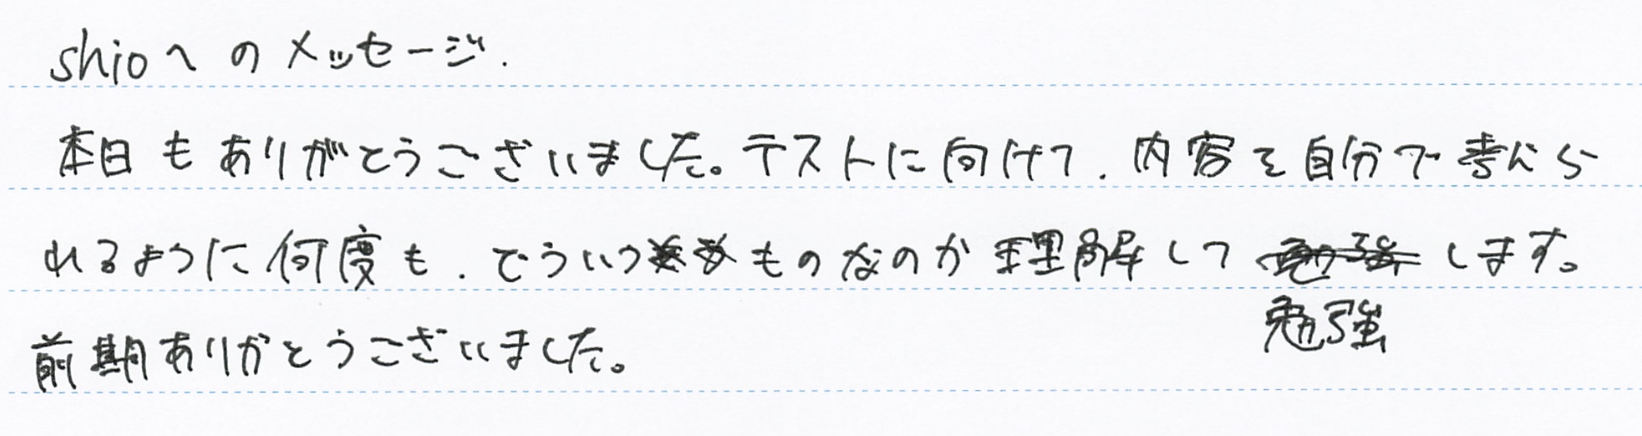 shioへのメッセージ.
本日もありがとうございました。テストに向けて、内容を自分で考えら
れるように何度も、どういうものなのか理解して勉強します。
前期ありがとうございました。